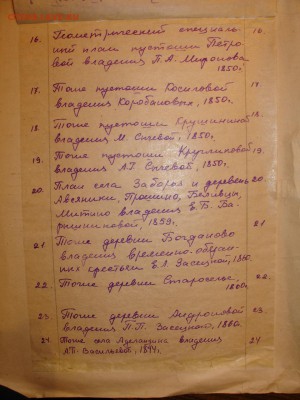 16. Геометрический специаль- 16.
ный план пустоши Петро-
вой владения П.А. Миронова
1850г.
17. То же пустоши Косиговой 17.
владения Коробановых, 1850г.
18. То же пустоши Крушинина 18.
владения М. 1850г.
19. То же пустоши Кругликовой 19.
владения А.Г. 1850г.
20. План села Заборья и деревень 20.
Авсяники, Прошино,
Митино владения Е.Б. Ба-
рышниковой, 1859г.
21 То же деревни Богданово 21
владения временно-обязан-
ных крестьян Е.А. Засецкой, 1860
22. То же деревни Староселье, 22.
1860г.
23. То же деревни Андроновой 23.
владения П.П. Засецкого, 1860г.
24. То же села владения 24
А.П. Васильевой, 1844г.